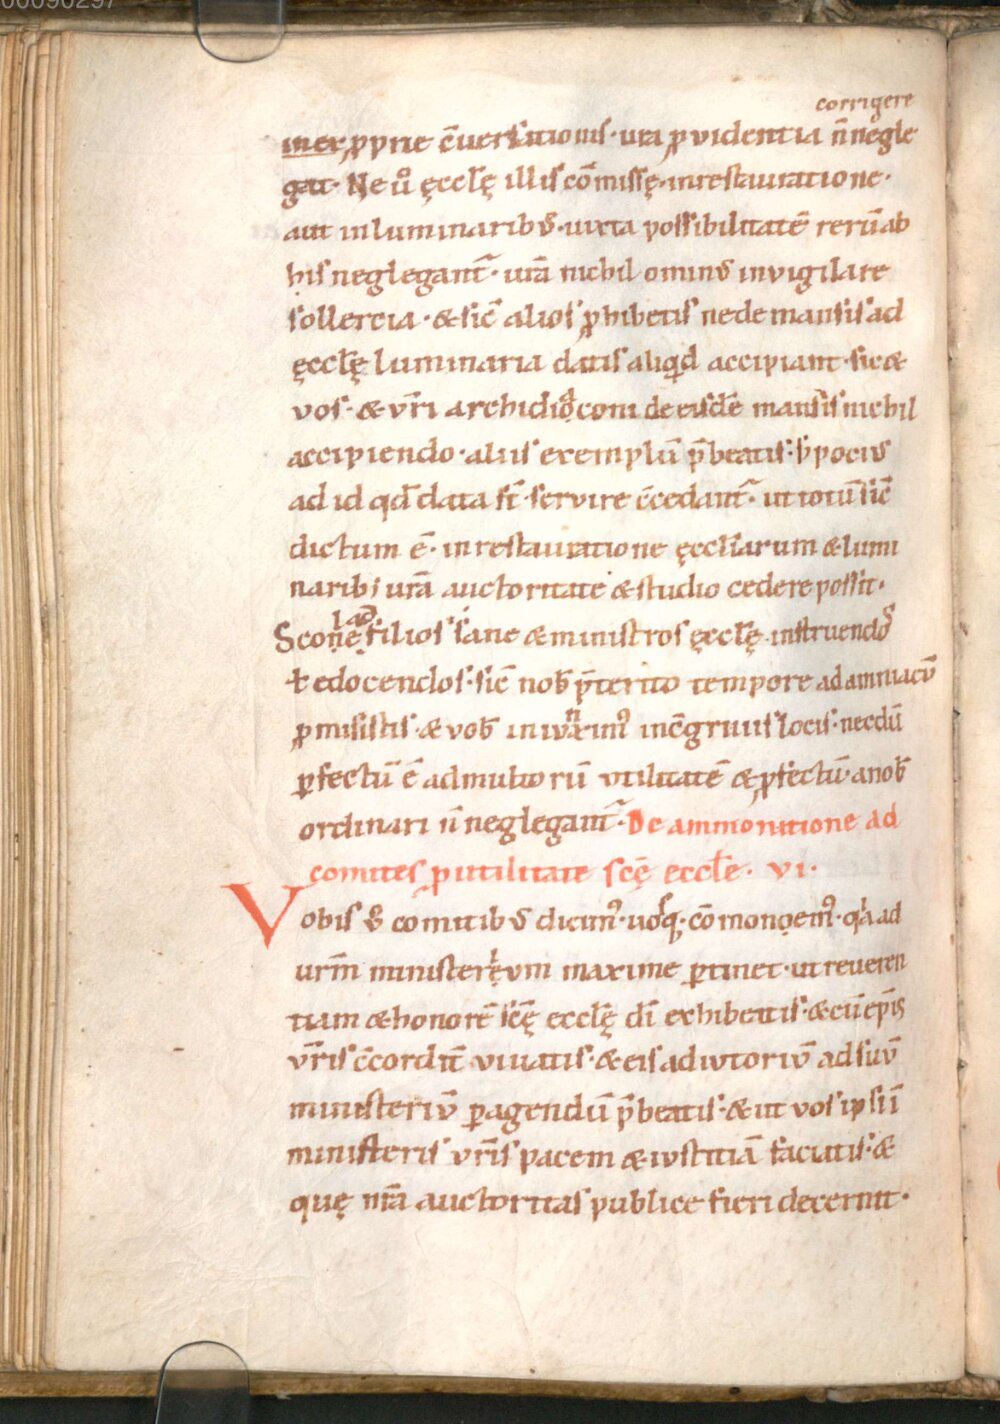 00090297
corrigere
mer ꝓprie c̄uersationis · ura ꝓvidentia n̄ negle
gat · Ne ů ęccłę illis cōmissę · in restauratione ·
aut in luminarib; · iuxta possibilitatē rerū ab
his neglegant᷑ · urā nichil omin; invigilare
sollercia · & sic̄ alios ꝓhibetis ne de mansis ad
ęccłę luminaria datis aliqd accipiant · sic &
vos · & vr̄i archidiaconi de eisdē mansis nichil
accipiendo · aliis exemplū p̄beatis · s; poci;
ad id qd̄ data st̄ · servire c̄cedant᷑ · ut totū sic̄
dictum ē · in restauratione ęccłiarum & lumi
narib; urā auctoritate & studio cedere possit ·
Scolas
filios sane & ministros ęccłę instruendos
ł edocendos · sic̄ nob̄ p̄terito tempore ad
ꝓmisistis · & vob̄ iniunxim᷒ in c̄gruis locis · necdū
ꝑfectū ē ad multorū utilitatē & ꝓfectū · a nob̄
ordinari n̄ neglegant᷑ · De ammonitione ad
comites ꝓ utilitate scę̄ eccłe · vi ·
Vobis ů comitib; dicim᷒ · uosq; · cōmonem᷒ · qa ad
urm̄ ministerium maxime ꝑtinet · ut reueren
tiam & honorē scę̄ eccłę dī exhibeatis · & cū epīs
vr̄is c̄corditer vivatis · & eis adiutoriū ad suū
ministeriū ꝑagendū p̄beatis · & ut vos ipsi ī
ministeris vr̄is pacem & iustitiā faciatis · &
quę nr̄a auctoritas publice fieri decernit ·